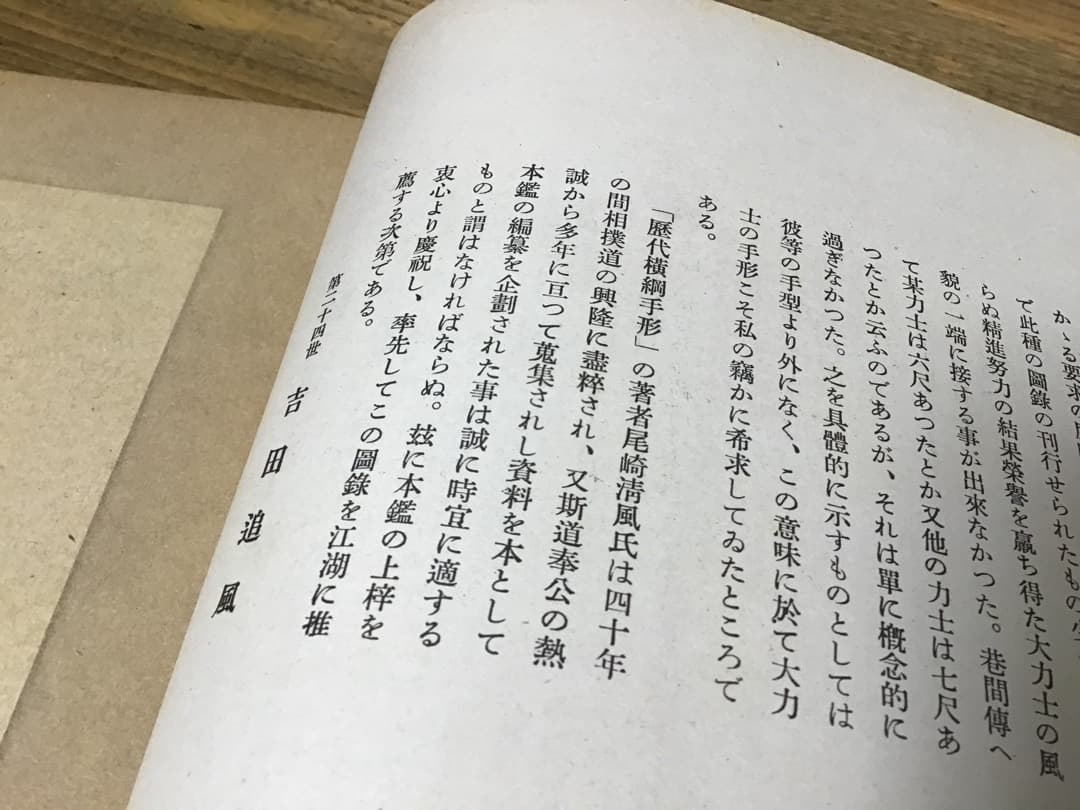 かゝる要求の
て此種の圖錄の刊行せられたもの
らぬ精進努力の結果榮譽を贏ち得た大力士の風
貌の一端に接する事が出來なかつた。巷間傳へ
て某力士は六尺あつたとか又他の力士は七尺あ
つたとか云ふのであるが、それは單に槪念的に
過ぎなかつた。之を具體的に示すものとしては
彼等の手型より外になく、この意味に於て大力
士の手形こそ私の竊かに希求してゐたところで
ある。
「歷代橫綱手形」の著者尾崎淸風氏は四十年
の間相撲道の興隆に盡粹され、又斯道奉公の熱
誠から多年に亙つて蒐集されし資料を本として
本鑑の編纂を企劃された事は誠に時宜に適する
ものと謂はなければならぬ。玆に本鑑の上梓を
衷心より慶祝し、率先してこの圖錄を江湖に推
薦する次第である。
第二十四世 吉田追風